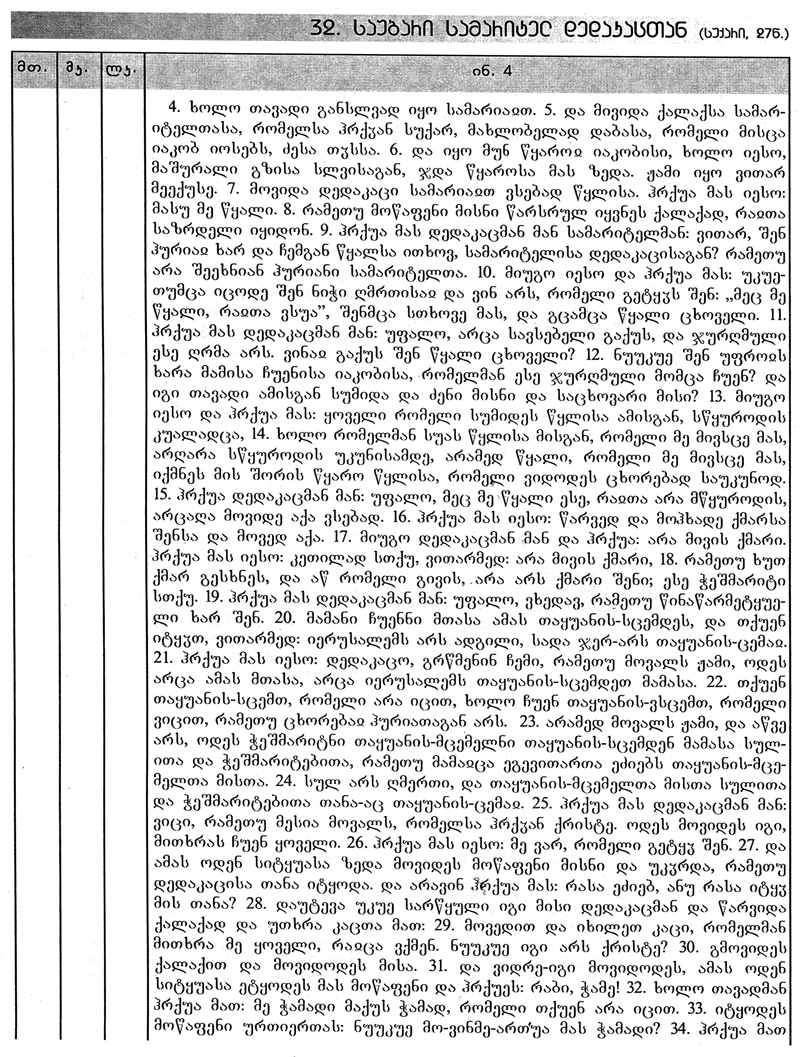 32. საუბარი სამარიტელ დედაკასთან (სუქარი, 27წ.)
მთ. მკ. ლკ. ინ. 4
4. ხოლო თავადი განსლვად იყო სამარიაჲთ. 5. და მივიდა ქალაქსა სამარ-
იტელთასა, რომელსა ჰრქჳან სუქარ, მახლობელად დაბასა, რომელი მისცა
იაკობ იოსებს, ძესა თჳსსა. 6. და იყო მუნ წყაროჲ იაკობისი, ხოლო იესო,
მაშურალი გზისა სლვისაგან, ჯდა წყაროსა მას ზედა. ჟამი იყო ვითარ
მეექუსე. 7. მოვიდა დედაკაცი სამარიაჲთ ვსებად წყლისა. ჰრქუა მას იესო:
მასუ მე წყალი. 8. რამეთუ მოწაფენი მისნი წარსრულ იყვნეს ქალაქად, რაჲთა
საზრდელი იყიდონ. 9. ჰრქუა მას დედაკაცმან მან სამარიტელმან: ვითარ, შენ
ჰურიაჲ ხარ და ჩემგან წყალსა ითხოვ, სამარიტელისა დედაკაცისაგან? რამეთუ
არა შეეხნიან ჰურიანი სამარიტელთა. 10. მიუგო იესო და ჰრქუა მას: უკუე-
თუმცა იცოდე შენ ნიჭი ღმრთისაჲ და ვინ არს, რომელი გეტყჳს შენ: „მეც მე
წყალი, რაჲთა ვსუა”, შენმცა სთხოვე მას, და გცამცა წყალი ცხოველი. 11.
ჰრქუა მას დედაკაცმან მან: უფალო, არცა სავსებელი გაქუს, და ჯურღმული
ესე ღრმა არს. ვინაჲ გაქუს შენ წყალი ცხოველი? 12. ნუუკუე შენ უფროჲს
ხარა მამისა ჩუენისა იაკობისა, რომელმან ესე ჯურღმული მომცა ჩუენ? და
იგი თავადი ამისგან სუმიდა და ძენი მისნი და საცხოვარი მისი? 13. მიუგო
იესო და ჰრქუა მას: ყოველი რომელი სუმიდეს წყლისა ამისგან, სწყუროდის
კუალადცა, 14. ხოლო რომელმან სუას წყლისა მისგან, რომელი მე მივსცე მას,
არღარა სწყუროდის უკუნისამდე, არამედ წყალი, რომელი მე მივსცე მას,
იქმნეს მის შორის წყარო წყლისა, რომელი ვიდოდეს ცხორებად საუკუნოდ.
15. ჰრქუა დედაკაცმან მან: უფალო, მეც მე წყალი ესე, რაჲთა არა მწყუროდის,
არცაღა მოვიდე აქა ვსებად. 16. ჰრქუა მას იესო: წარვედ და მოჰხადე ქმარსა
შენსა და მოვედ აქა. 17. მიუგო დედაკაცმან მან და ჰრქუა: არა მივის ქმარი.
ჰრქუა მას იესო: კეთილად სთქუ, ვითარმედ: არა მივის ქმარი, 18. რამეთუ ხუთ
ქმარ გესხნეს, და აწ რომელი გივის, არა არს ქმარი შენი; ესე ჭეშმარიტი
სთქუ. 19. ჰრქუა მას დედაკაცმან მან: უფალო, ვხედავ, რამეთუ წინაწარმეტყუე-
ლი ხარ შენ. 20. მამანი ჩუენნი მთასა ამას თაყუანის-სცემდეს, და თქუენ
იტყჳთ, ვითარმედ: იერუსალემს არს ადგილი, სადა ჯერ-არს თაყუანის-ცემაჲ.
21. ჰრქუა მას იესო: დედაკაცო, გრწმენინ ჩემი, რამეთუ მოვალს ჟამი, ოდეს
არცა ამას მთასა, არცა იერუსალემს თაყუანის-სცემდეთ მამასა. 22. თქუენ
თაყუანის-სცემთ, რომელი არა იცით, ხოლო ჩუენ თაყუანის-ვსცემთ, რომელი
ვიცით, რამეთუ ცხორებაჲ ჰურიათაგან არს. 23. არამედ მოვალს ჟამი, და აწვე
არს, ოდეს ჭეშმარიტნი თაყუანის-მცემელნი თაყუანის-სცემდენ მამასა სულ-
ითა და ჭეშმარიტებითა, რამეთუ მამაჲცა ეგევითართა ეძიებს თაყუანის-მცე-
მელთა მისთა. 24. სულ არს ღმერთი, და თაყუანის-მცემელთა მისთა სულითა
და ჭეშმარიტებითა თანა-აც თაყუანის-ცემაჲ. 25. ჰრქუა მას დედაკაცმან მან:
ვიცი, რამეთუ მესია მოვალს, რომელსა ჰრქჳან ქრისტე. ოდეს მოვიდეს იგი,
მითხრას ჩუენ ყოველი. 26. ჰრქუა მას იესო: მე ვარ, რომელი გეტყჳ შენ. 27. და
ამას ოდენ სიტყუასა ზედა მოვიდეს მოწაფენი მისნი და უკჳრდა, რამეთუ
დედაკაცისა თანა იტყოდა. და არავინ ჰრქუა მას: რასა ეძიებ, ანუ რასა იტყჳ
მის თანა? 28. დაუტევა უკუე სარწყული იგი მისი დედაკაცმან და წარვიდა
ქალაქად და უთხრა კაცთა მათ: 29. მოვედით და იხილეთ კაცი, რომელმან
მითხრა მე ყოველი, რაჲცა ვქმენ. ნუუკუე იგი არს ქრისტე? 30. გმოვიდეს
ქალაქით და მოვიდოდეს მისა. 31. და ვიდრე-იგი მოვიდოდეს, ამას ოდენ
სიტყუასა ეტყოდეს მას მოწაფენი და ჰრქუეს: რაბი, ჭამე! 32. ხოლო თავადმან
ჰრქუა მათ: მე ჭამადი მაქუს ჭამად, რომელი თქუენ არა იცით. 33. იტყოდეს
მოწაფენი ურთიერთას: ნუუკუე მო-ვინმე-ართუა მას ჭამადი? 34. ჰრქუა მათ